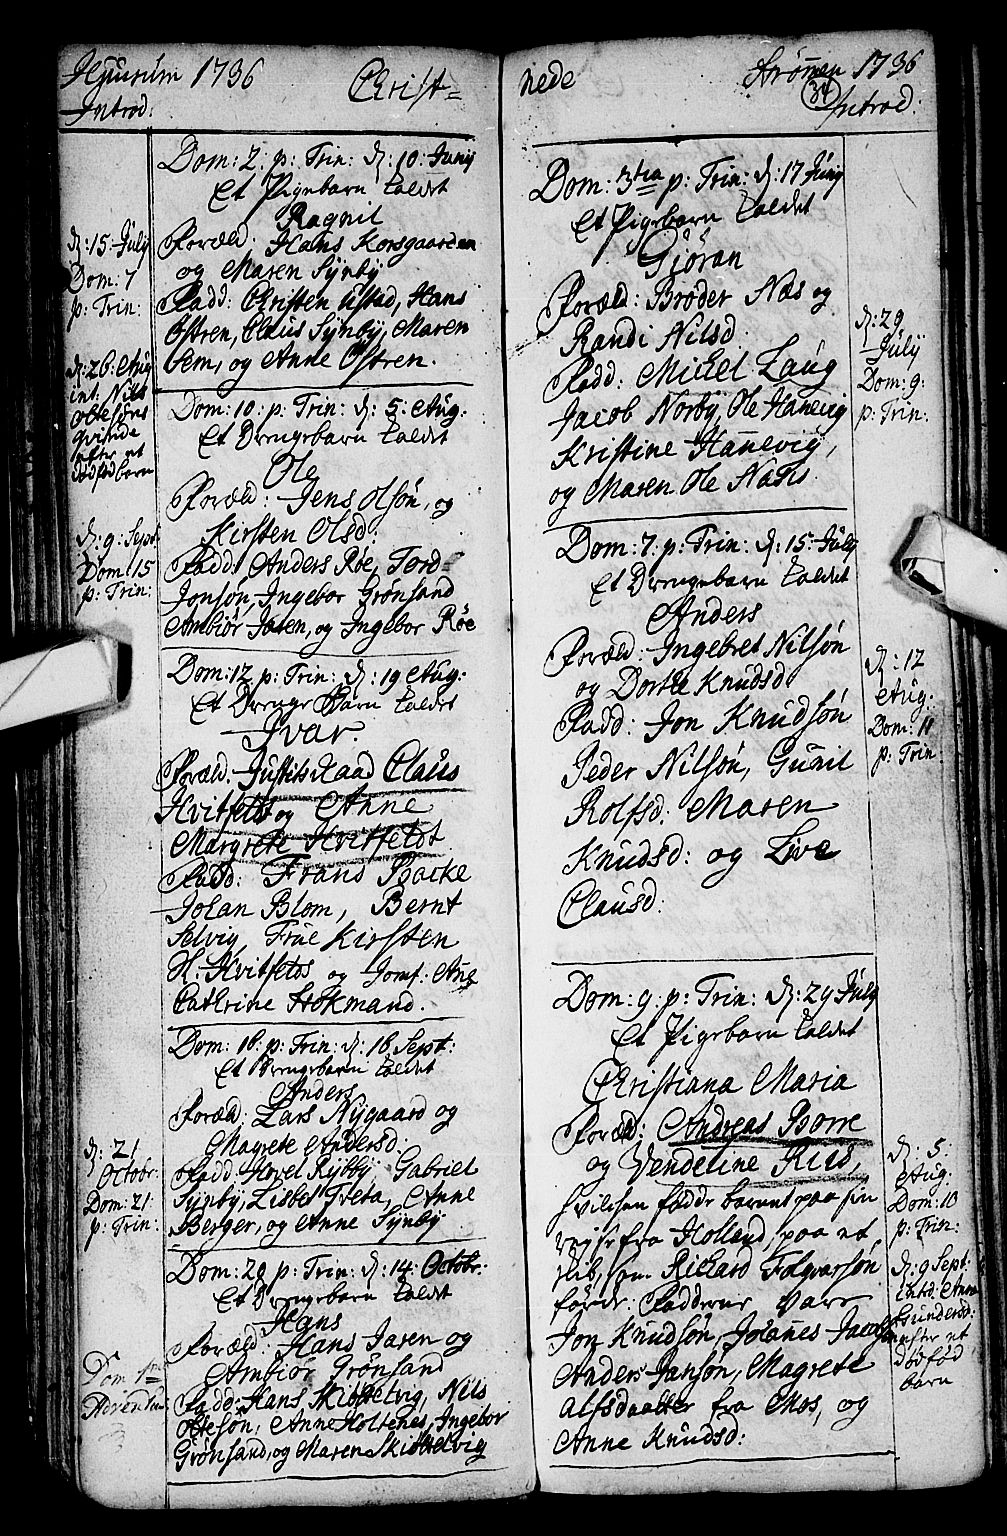 Hiurum 1736 Christ=
Introd:
Dom: 2. p: Trin: d: 10. Junij
Et Pigebarn kaldet
Ragnil
Foræld: Hans Korsgaarden
og Maren Synby
Fadd: Christen Ustad, Hans
Østren, Claus Synby, Maren
Sem, og Anne Østren.
d: 15 July
Dom: 7
p: Trin:
Dom: 10. p: Trin: d: 5. Aug:
Et Drengebarn kaldet
Ole
Foræld: Jens Olsøn, og
Kirsten Olsd:
Fadd: Anders Røe, Tord
Jonsøn Ingebor Grønsand
Ambiør Jasen, og Ingebor Røe
d: 26. Aug
int. Nils
Olsesøns
qvinde
efter et
dødfød barn
d: 9. Sept.
Dom: 15
p: Trin:
Dom: 12 p: Trin: d: 19 Aug:
Et Drenge Barn kaldet
Ivar.
Foræld. Justitsraad Claus
Hvitfeldt og Anne
Margrete Hvitfeldt
Fadd: Frans Backe
Johan Blom, Bernt
Selvig, Frue Kirsten
H. Hvitfelds og Jomf: Ane
Cathrine Stokmand.
Dom: 16. p: Trin: d: 16 Sept:
Et Drengebarn kaldet
Anders
Foræld: Lars Nygaard og
Magrete Andersd:
Fadd: Hovel Rygby, Gabriel
Synby, Lisbet Tveta, Anne
Berger, og Anne Synby
d: 21
Octobr.
Dom: 21.
p: Trin:
Dom: 20 p: Trin: d: 14. Octobr:
Et Drengebarn kaldet
Hans
Foræld: Hans Jasen og
Ambiør Grønsand
Fadd: Hans Skibhelvig, Nils
Olsesøn, Anne Holtenes, Ingebor
Grønsand, og Maren Skibhelvig
Dom 1ma
Adventus
nede Strømen 1736
34
Introd:
Dom: 3tia p: Trin: d: 17 Junij
Et Pigebarn kaldet
Gjøran
Foræld: Broder Næs og
Randi Nilsd.
Fadd: Michel Laug
Jacob Norby, Ole Hanevig
Kristine Hanevig,
og Maren Ole Næss.
d: 29
July
Dom: 9:
p: Trin:
Dom: 7. p: Trin: d: 15. July
Et Drengebarn kaldet
Anders
Foræld: Ingebret Nilsøn
og Dorthe Knudsd.
Fadd: Jon Knudsøn
Peder Nilsøn, Gunil
Rolfsd: Maren
Knudsd: og Live
Clausd:
d: 12
Aug:
Dom: 11
p: Trin:
Dom: 9. p: Trin: d: 29 July
Et Pigebarn kaldet
Christiana Maria
Foræld: Andreas Borre
og Vendeline Riis,
hvilchen fødde barnet paa sin
reyse fra Holland, paa et
skib, som Richard Folqvarsøn
førde: Fadderne vare
Jon Knudsøn, Johannes Jacobs
Anders Jansøn, Magrete
Alfsdaatter fra Mos, og
Anne Knudsd:
d: 5.
Aug:
Dom: 10
p: Trin:
d: 9 Sept:
intrd: Anne
Gundersd:
efter et
dødfød
barn